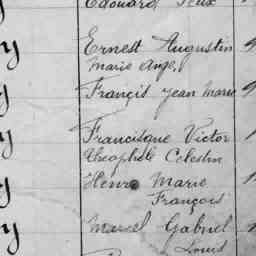 Edouard
Ernest Augustin
Marie Ange,
Françis Jean Marie
Francisque Victor
théophile Celestin
Henri Marie
François
Marcel Gabriel
Louis